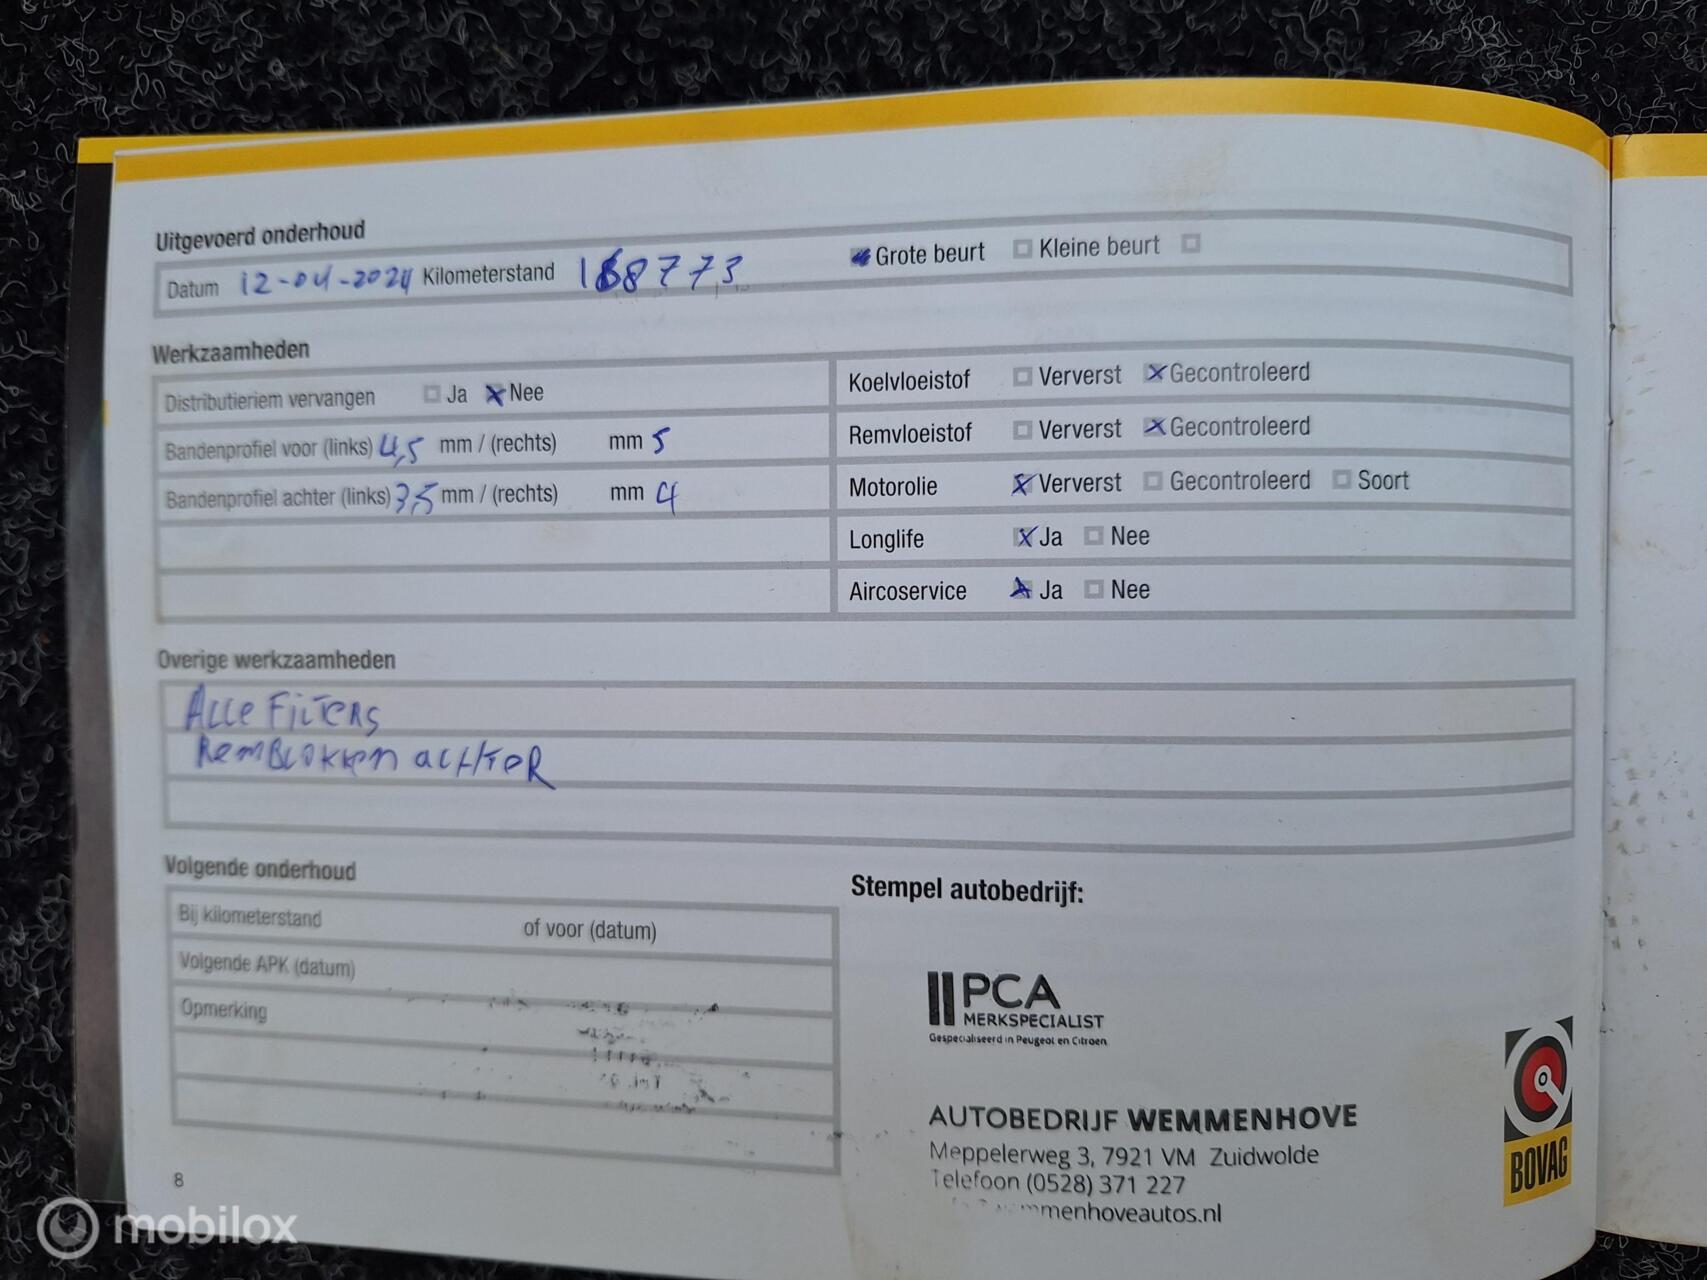 Uitgevoerd onderhoud
Datum 12-04-2024 Kilometerstand 168773 Grote beurt Kleine beurt
Werkzaamheden
Distributieriem vervangen Ja Nee
Bandenprofiel voor (links) 4,5 mm / (rechts) mm 5
Bandenprofiel achter (links) 3,5 mm / (rechts) mm 4
Koelvloeistof Ververst Gecontroleerd
Remvloeistof Ververst Gecontroleerd
Motorolie Ververst Gecontroleerd Soort
Longlife Ja Nee
Aircoservice Ja Nee
Overige werkzaamheden
ALLE FILTERS
REMBLOKKEN ACHTER
Volgende onderhoud
Bij kilometerstand of voor (datum)
Volgende APK (datum)
Opmerking
Stempel autobedrijf:
PCA
MERKSPECIALIST
Gespecialiseerd in Peugeot en Citroen
AUTOBEDRIJF WEMMENHOVE
Meppelerweg 3, 7921 VM Zuidwolde
Telefoon (0528) 371 227
menhoveautos.nl
BOVAG
8
mobilox